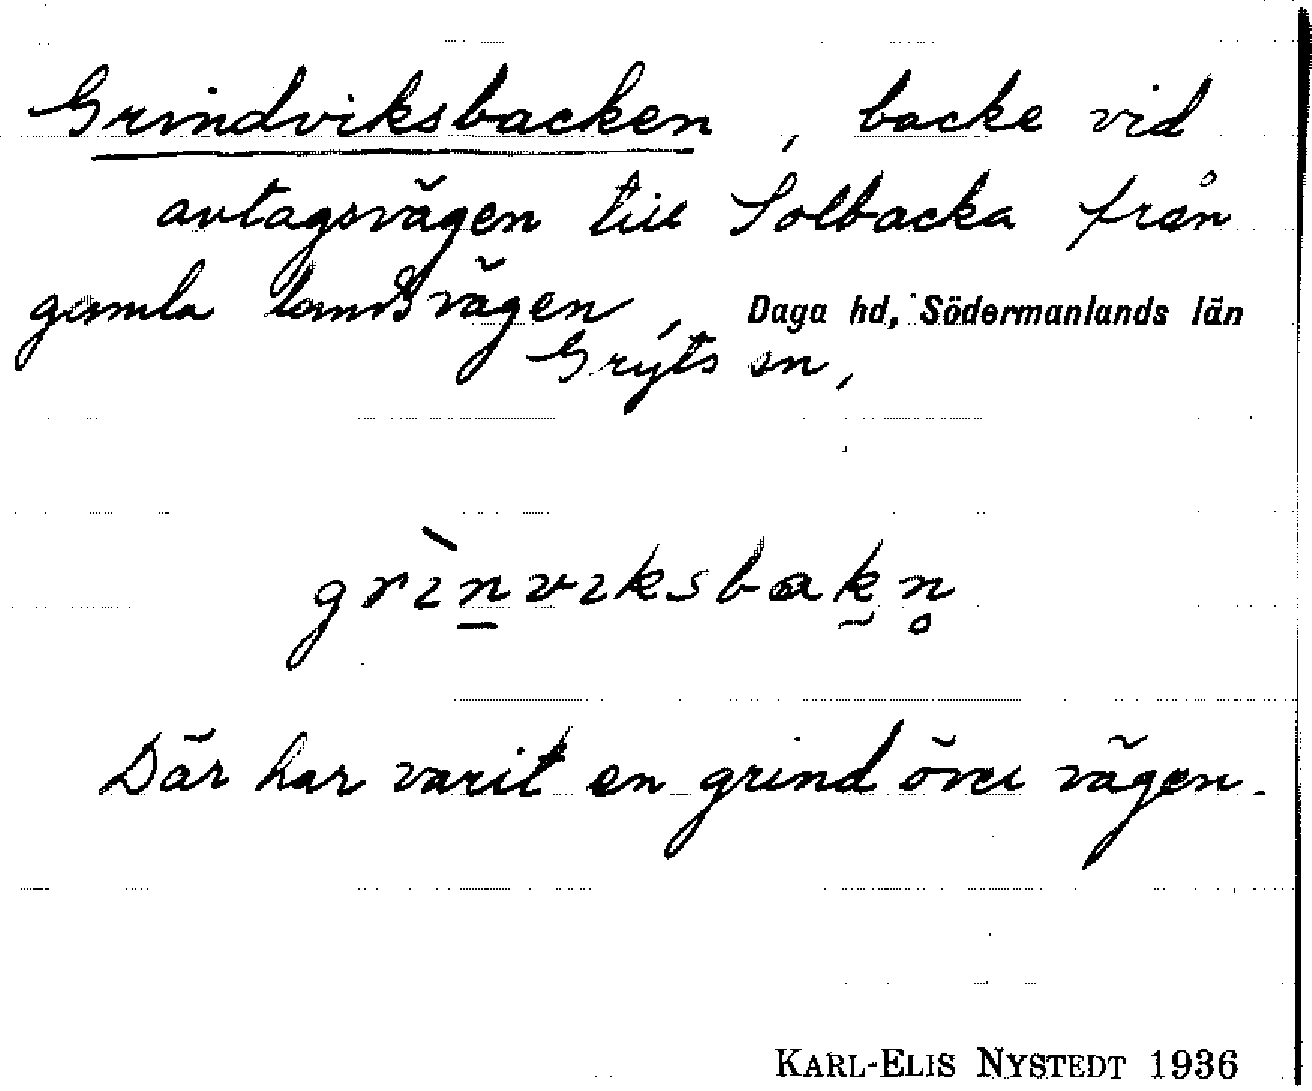 Grindviksbacken, backe vid
avtagsvägen till Solbacka från
gamla landsvägen, Daga hd, Södermanlands län
Gryts sn,
grìn̠viksbak̰n̥
Där har varit en grind över vägen.
KARL-ELIS NYSTEDT 1936